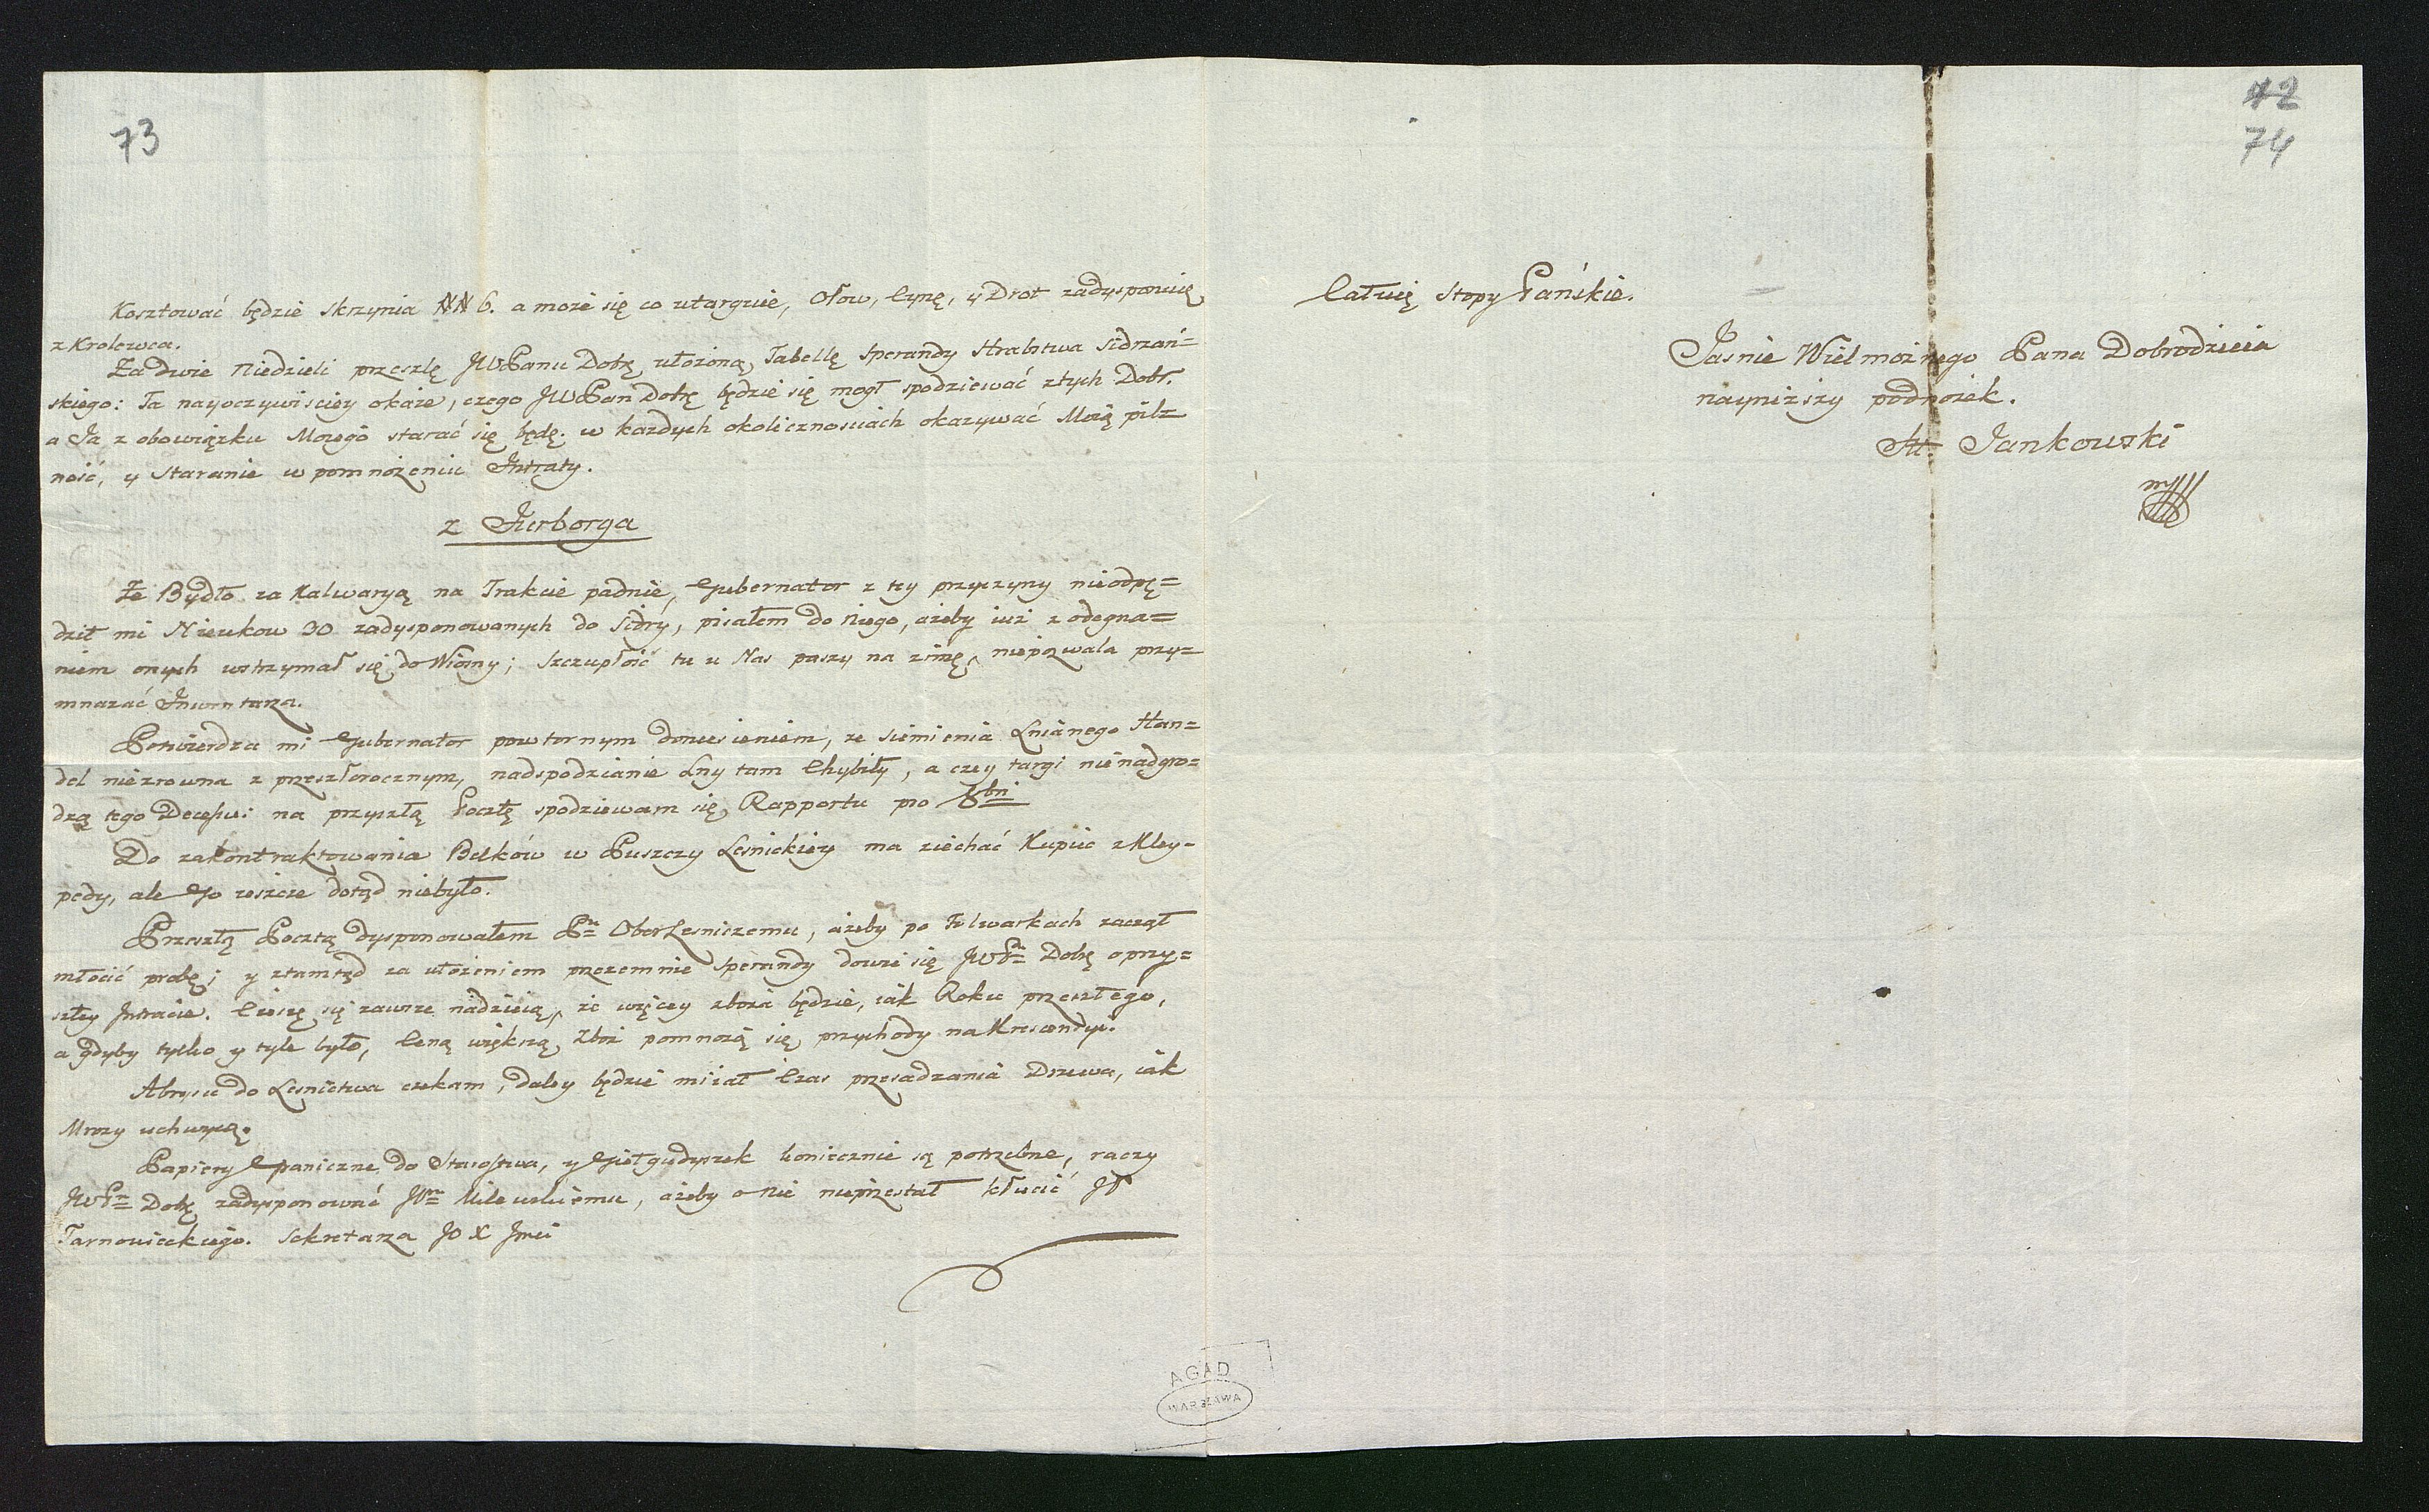 73
Kosztować będzie skrzynia ## 6. a może się co utarguie, Ołow, Cynę, y Drot zadysponuię
z Krolewca.
Za dwie Niedzieli przeszlę JWPanu Dobrę ułożoną Tabellę Sperandy Hrabstwa Sidrzań=
skiego: Ta nayoczywisciey okaże, czego JWPan Dobrę będzie się mogł spodziewać z tych Dobr.
a Ja z obowiązku Moiego starać się będę. w kazdych okolicznosciach okazywać Moią pil=
ność, y staranie w pomnożeniu Intraty.
z Jurborga
Że Bydło za Kalwaryą na Trakcie padnie, Gubernator z tey przyczyny nieodpę=
dził mi Nieukow 30 zadysponowanych do Sidry, pisałem do niego, ażeby iuż z odegna=
niem onych wstrzymał się do Wiosny; szczupłość tu u Nas paszy na zimę, niepozwala przy=
mnażać Inwentarza.
Potwierdza mi Gubernator powtornym doniesieniem, ze siemienia Lnianego Han=
del niezrowna z przeszłorocznym, nadspodzianie Lny tam Chybiły, a czy targi nienadgro=
dzą tego Decessu: na przyszłą Pocztę spodziewam się Rapportu pro 8bri
Do zakontraktowania Belków w Puszczy Lesnickiey ma ziechać Kupiec z Kley=
pedy, ale Go ieszcze dotąd niebyło.
Przeszłą Pocztą dysponowałem Pu OberLesniczemu, ażeby po Folwarkach zaczął
młocić probę; y ztamtąd za ułożeniem przezemnie Sperandy dowie się JWPn Dobrę o przy=
szłey Intracie. Cieszę się zawsze nadzieią, że więcey zboża będzie, iak Roku przeszłego,
a gdyby tylko y tyle było, Ceną większą Zboż pomnożą się przychody na Krescencyi.
Abrysu do Lesnictwa czekam, daley będzie miiał Czas przesadzania Drzewa, iak
Mrozy uchwycą.
Papiery Graniczne do Starostwa, y Giełgudyszek koniecznie są potrzebne, raczy
JWPn Dobrę zadysponować JPnu Milewskiemu, ażeby o nie nieprzestał kłucić JP
Tarnowieckiego. Sekretarza JO X Jmci
42
74
Całuię stopy Pańskie.
Jasnie Wielmożnego Pana Dobrodzieia
naynizszy podnożek.
Jankowski
mp
AGAD
WARSZAWA